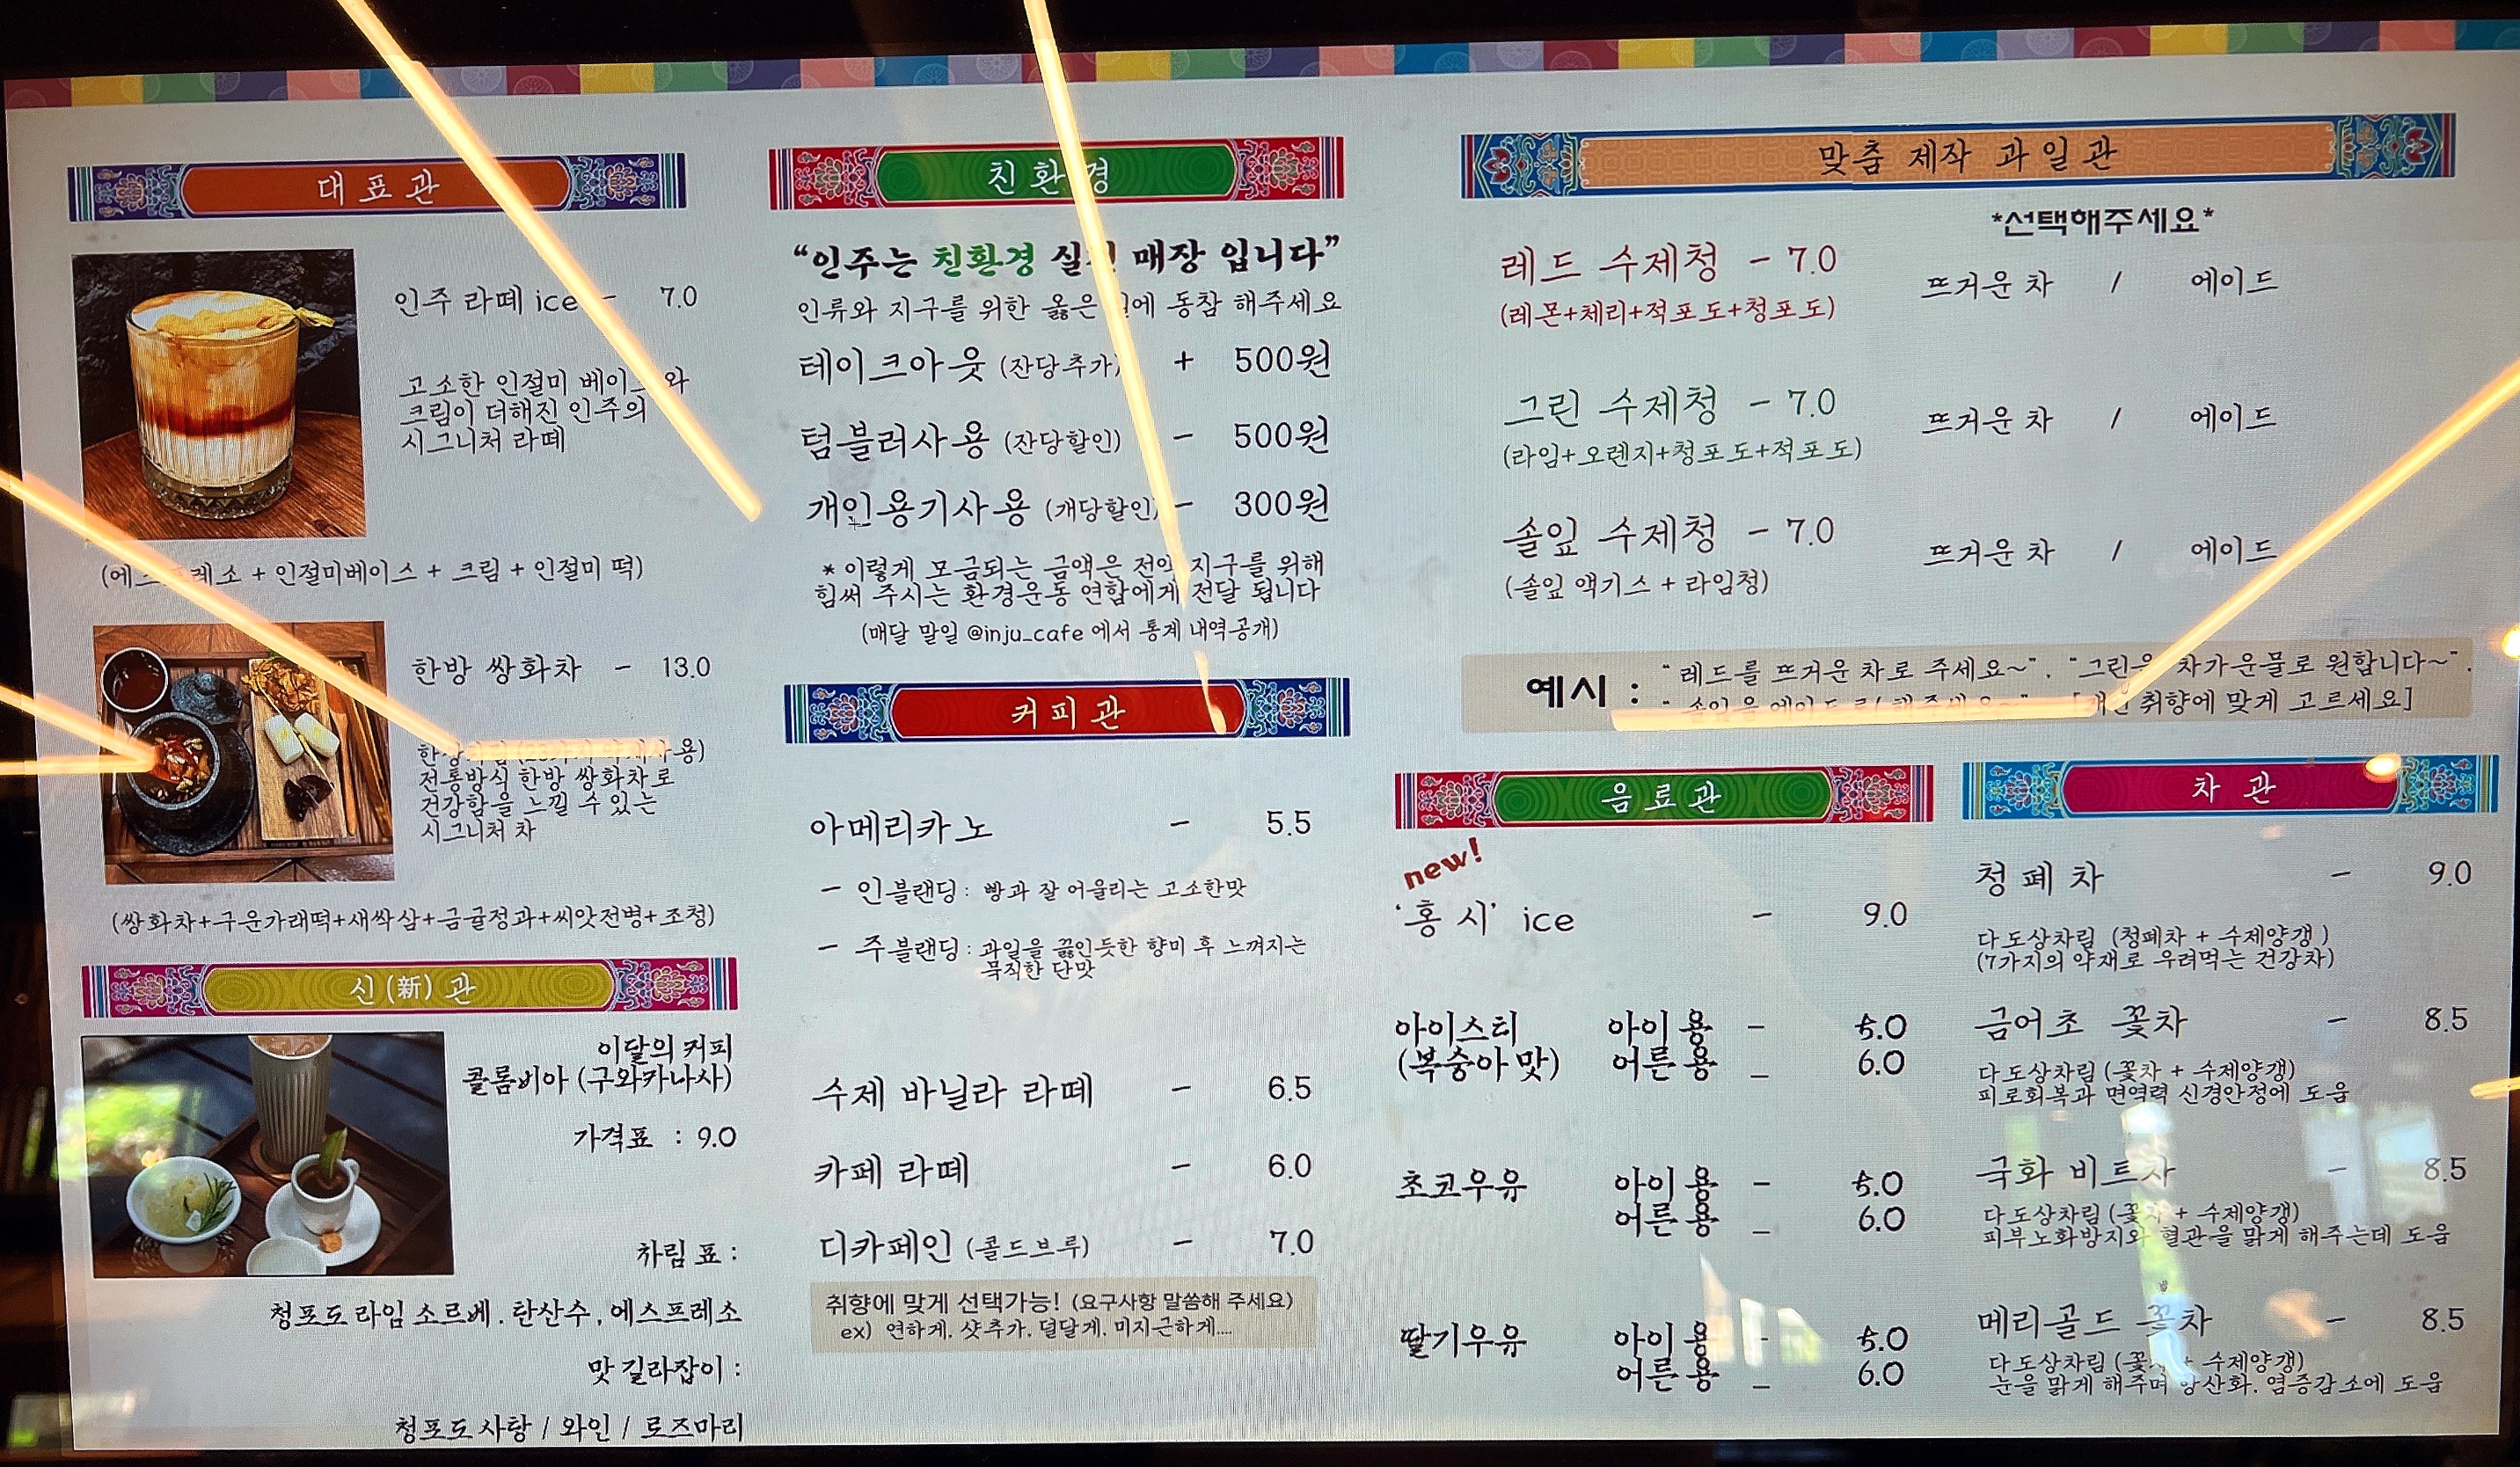 대표관
인주 라떼 ice - 7.0
고소한 인절미 와
크림이 더해진 인주의
시그니처 라떼
+ 인절미베이스 + 크림 + 인절미 떡)
한방 쌍화차 - 13.0
전통방식 한방 쌍화차로
건강함을 느낄 수 있는
시그니처 차
(쌍화차+구운가래떡+새싹삼+금귤정과+씨앗전병+조청)
신(新)관
이달의 커피
콜롬비아 (구와카나사)
가격표 : 9.0
차림 표 :
청포도 라임 소르베 . 탄산수 , 에스프레소
맛 길라잡이 :
청포도 사탕 / 와인 / 로즈마리
친환경
“인주는 친환경 매장 입니다”
인류와 지구를 위한 옳은 동참 해주세요
테이크아웃 (잔당추가) + 500원
텀블러사용 (잔당할인) - 500원
개인용기사용 (개당할인) - 300원
* 이렇게 모금되는 금액은 전액 지구를 위해
힘써 주시는 환경운동 연합에게 전달 됩니다
(매달 말일 @inju_cafe 에서 통계 내역공개)
커피관
아메리카노 - 5.5
- 인블랜딩 : 빵과 잘 어울리는 고소한맛
- 주블랜딩 : 과일을 끓인듯한 향미 후 느껴지는
묵직한 단맛
수제 바닐라 라떼 - 6.5
카페 라떼 - 6.0
디카페인 (콜드브루) - 7.0
취향에 맞게 선택가능! (요구사항 말씀해 주세요)
ex) 연하게, 샷추가, 덜달게, 미지근하게....
맞춤 제작 과일관
*선택해주세요*
레드 수제청 - 7.0 뜨거운 차 / 에이드
(레몬+체리+적포도+청포도)
그린 수제청 - 7.0 뜨거운 차 / 에이드
(라임+오렌지+청포도+적포도)
솔잎 수제청 - 7.0 뜨거운 차 / 에이드
(솔잎 액기스 + 라임청)
예시 : “ 레드를 뜨거운 차로 주세요~” . “ 그린은 차가운물로 원합니다~” .
취향에 맞게 고르세요]
음료관
new!
‘홍 시’ ice - 9.0
아이스티 아이용 - 5.0
(복숭아 맛) 어른용 - 6.0
초코우유 아이용 - 5.0
어른용 - 6.0
딸기우유 아이용 - 5.0
어른용 - 6.0
차 관
청 폐 차 - 9.0
다도상차림 (청폐차 + 수제양갱)
(7가지의 약재로 우려먹는 건강차)
금어초 꽃차 - 8.5
다도상차림 (꽃차 + 수제양갱)
피로회복과 면역력 신경안정에 도움
국화 비트차 - 8.5
다도상차림 (꽃차 + 수제양갱)
피부노화방지와 혈관을 맑게 해주는데 도움
메리골드 꽃차 - 8.5
다도상차림 (꽃차 + 수제양갱)
눈을 맑게 해주며 항산화. 염증감소에 도움